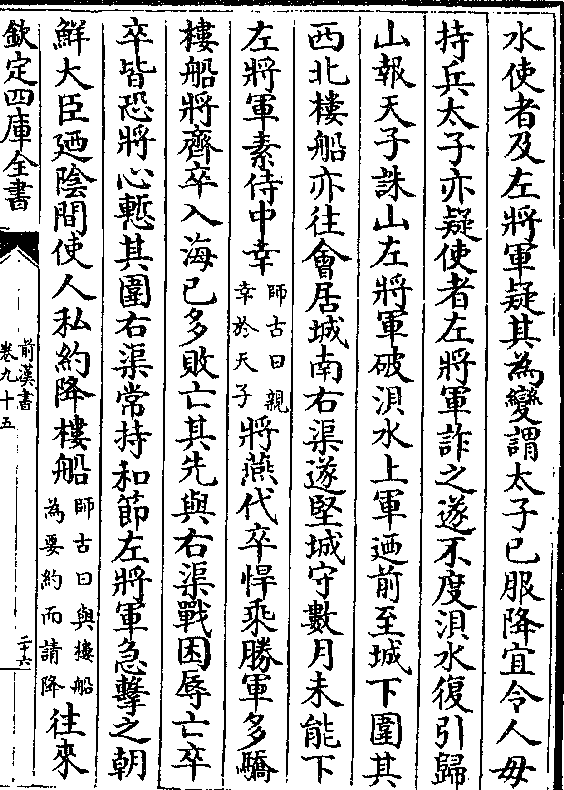 水使者及左將軍疑其為變謂太子已服降宜令人毋
持兵太子亦疑使者左將軍詐之遂不度浿水復引歸
山報天子誅山左將軍破浿水上軍廼前至城下圍其
西北樓船亦往會居城南右渠遂堅城守數月未能下
左將軍素侍中幸師古曰親幸於天子將燕代卒悍乘勝軍多驕
樓船將齊卒入海已多敗亡其先與右渠戰困辱亡卒
卒皆恐將心慙其圍右渠常持和節左將軍急擊之朝
鮮大臣廼陰間使人私約降樓船師古曰與樓船為要約而請降往來
欽定四庫全書
前漢書
卷九十五
二十六